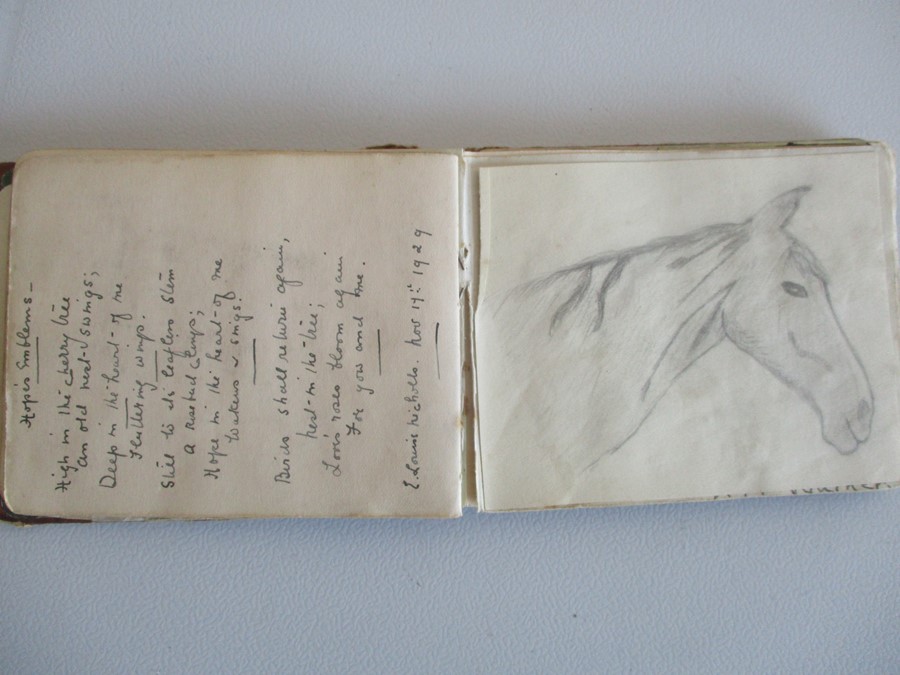 Hope's Emblems –
High in the cherry tree
an old nest swings;
Deep in the heart of me
Fluttering wings.
Still to its leafless stem
a rosebud clings;
Hope in the heart of me
Wakens & sings.
Birds shall return again,
nest in the tree;
Love's roses bloom again
For you and me.
E. Louis Nicholls. Nov 17th 1929